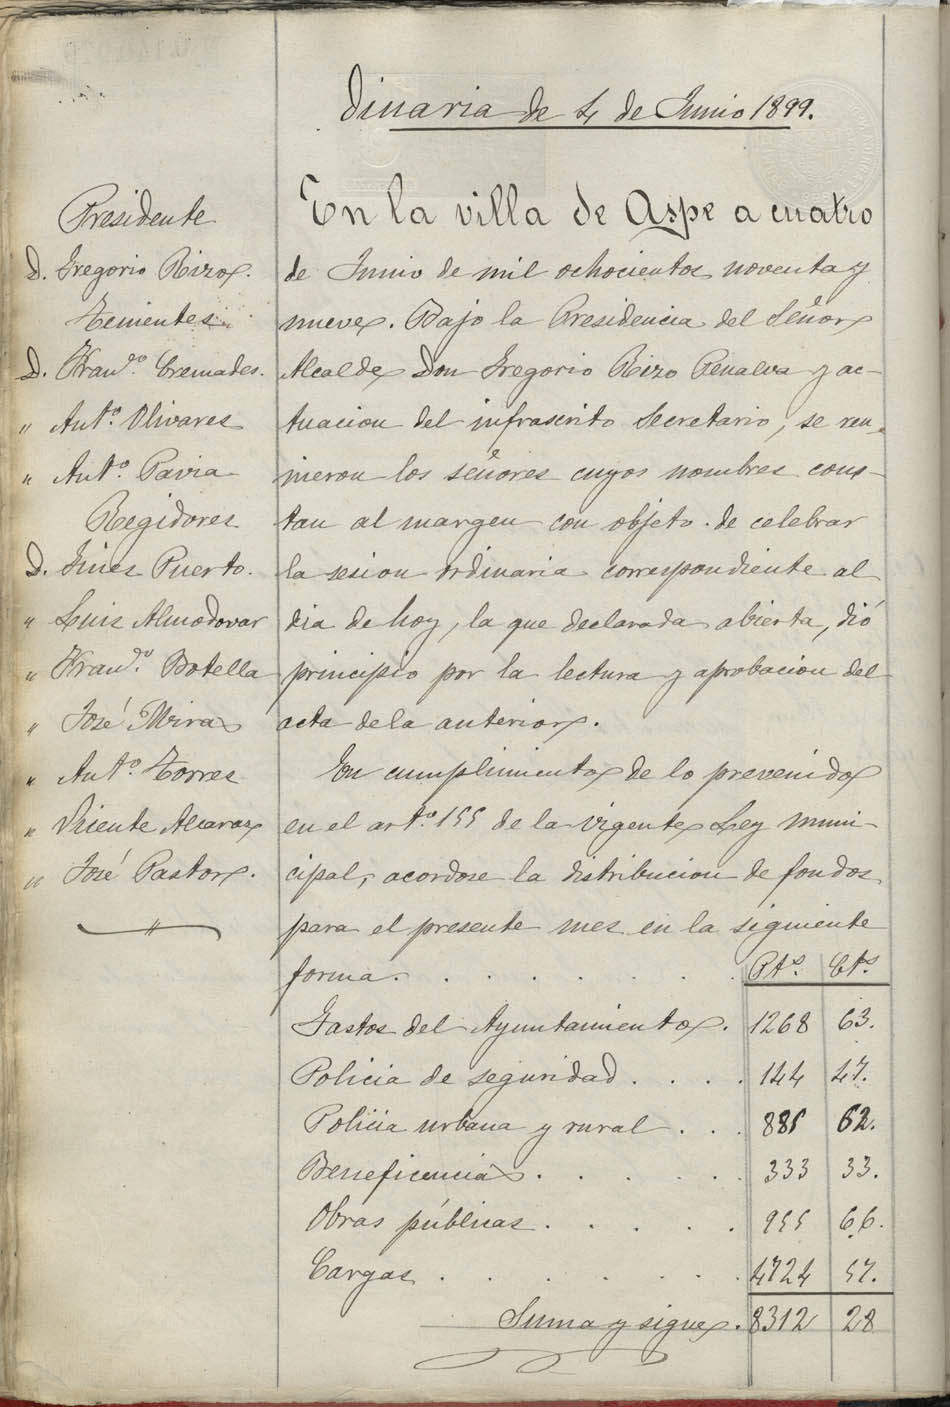 Ordinaria de 4 de Junio 1899.
Presidente
D. Gregorio Rizo.
Tenientes.
D. Fran.co Cremades.
" Ant.o Olivares
" Ant.o Pavia
Regidores
D. Gines Puerto.
" Luis Almodovar
" Fran.co Botella
" José Mira
" Ant.o Torres
" Vicente Alcaraz
" José Pastor.
"
En la villa de Aspe a cuatro
de Junio de mil ochocientos noventa y
nueve. Bajo la Presidencia del Señor
Alcalde Don Gregorio Rizo Penalva y ac-
tuacion del infrascrito Secretario, se reu-
nieron los señores cuyos nombres cons-
tan al margen con objeto de celebrar
la sesion ordinaria correspondiente al
dia de hoy, la que declarada abierta, dió
principio por la lectura y aprobacion del
acta de la anterior.
En cumplimiento de lo prevenido
en el art.o 155 de la vigente Ley muni-
cipal, acordose la distribucion de fondos
para el presente mes en la siguiente
forma. . . . . . . . Pts. Cts.
Gastos del Ayuntamiento. 1268 63.
Policia de seguridad . . . . 144 47.
Policia urbana y rural . . . 885 62.
Beneficencia . . . . . . 333 33.
Obras públicas . . . . . 955 66.
Cargas . . . . . . . 4724 57.
Suma y sigue. 8312 28